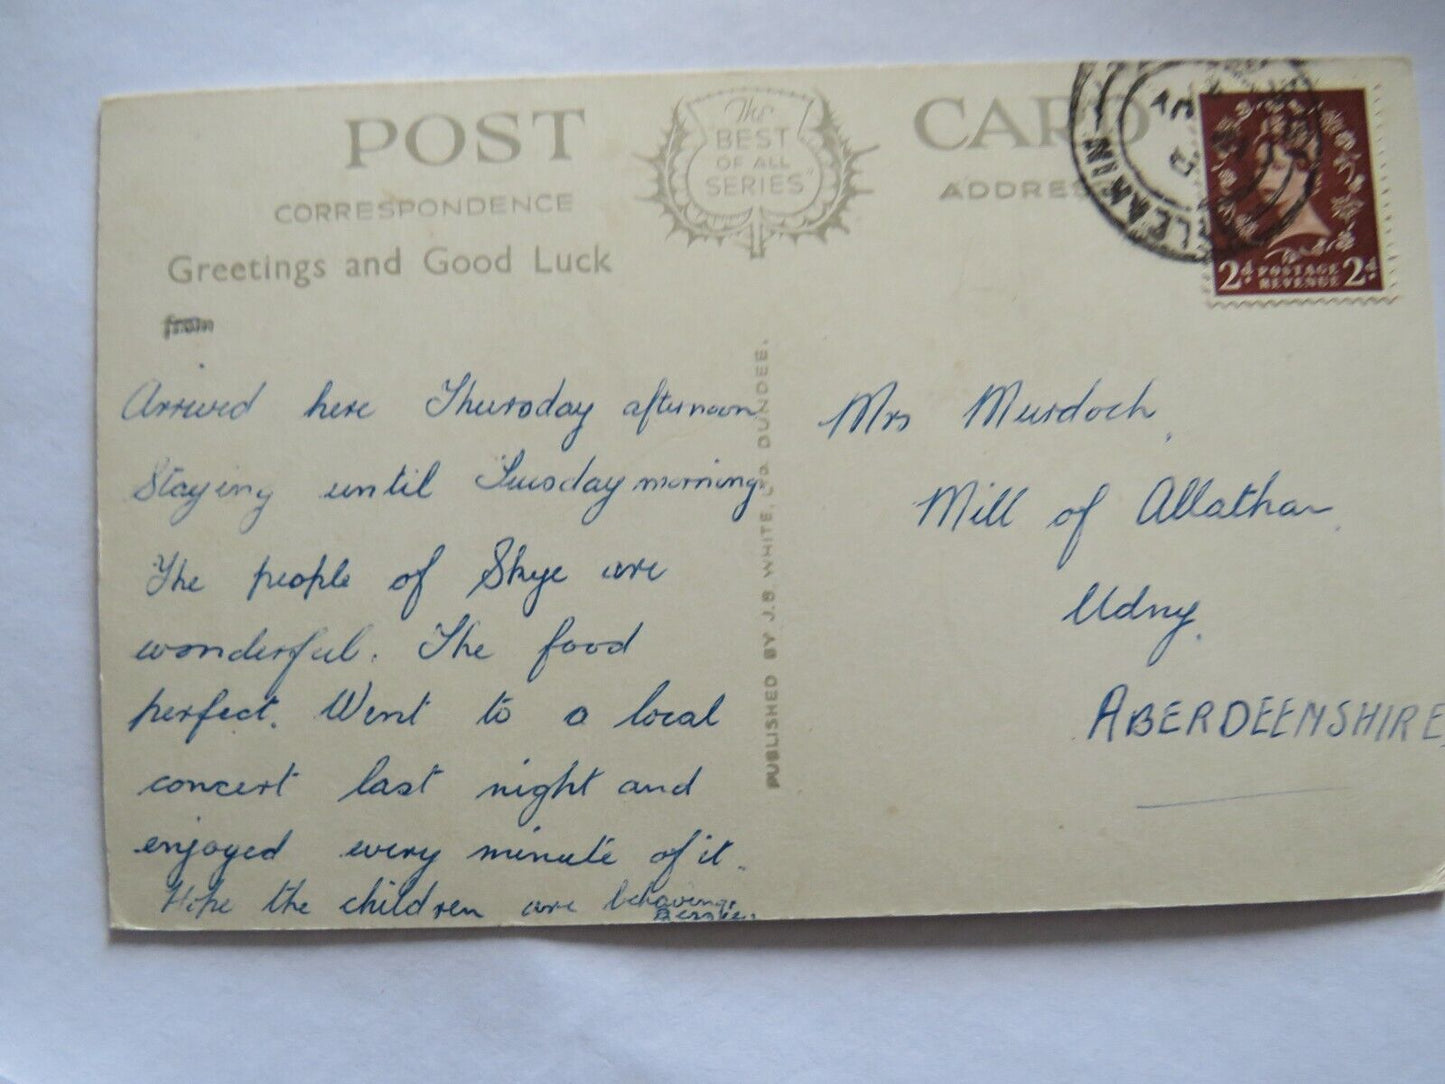 POST CARD
The
BEST
OF ALL
SERIES
CORRESPONDENCE
ADDRESS
Greetings and Good Luck
from
Arrived here Thursday afternoon
Staying until Tuesday morning
The people of Skye are
wonderful. The food
perfect. Went to a local
concert last night and
enjoyed every minute of it.
Hope the children are behaving.
PUBLISHED BY J.B. WHITE, LTD. DUNDEE.
Mrs Murdoch,
Mill of Allathan,
Udny,
ABERDEENSHIRE
2d POSTAGE REVENUE 2d